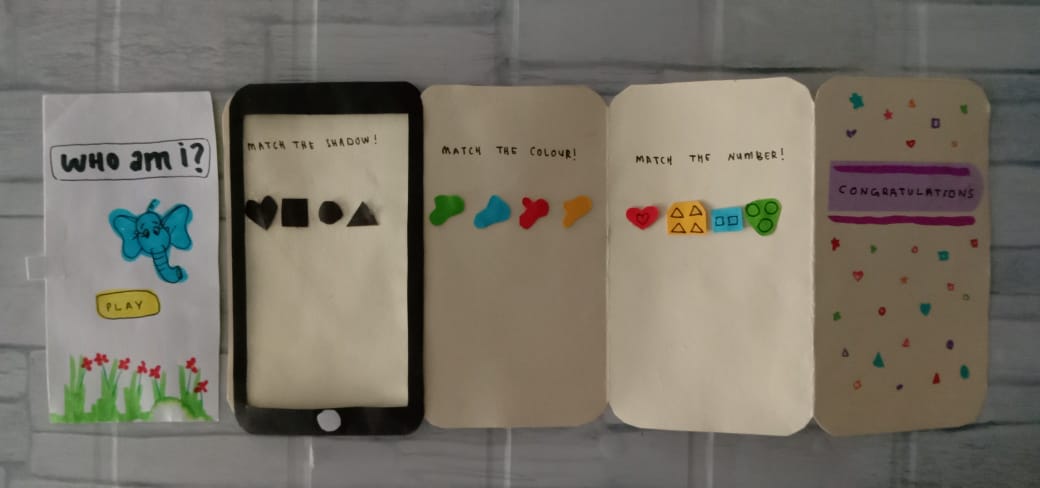 WHO am i?
PLAY
MATCH THE SHADOW!
MATCH THE COLOUR!
MATCH THE NUMBER!
CONGRATULATIONS